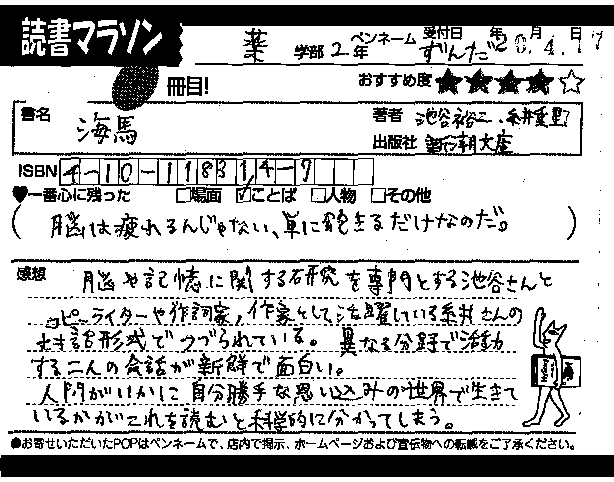 読書マラソン
薬 学部 2年 ペンネーム ずんだ 受付日 年 月 日
冊目! おすすめ度 ★★★★☆
書名 海馬 著者 池谷裕二・糸井重里
出版社 新潮文庫
ISBN 4-10-118314-9
♥一番心に残った □場面 ☑ことば □人物 □その他
(脳は疲れるんじゃない、単に飽きるだけなのだ。)
感想 脳や記憶に関する研究を専門とする池谷さんと
コピーライターや作詞家、作家として活躍している糸井さんの
対話形式でつづられている。異なる分野で活動
する二人の会話が新鮮で面白い。
人間がいかに自分勝手な思い込みの世界で生きて
いるかがこれを読むと科学的に分かってしまう。
●お寄せいただいたPOPはペンネームで、店内で掲示、ホームページおよび宣伝物への転載をご了承ください。